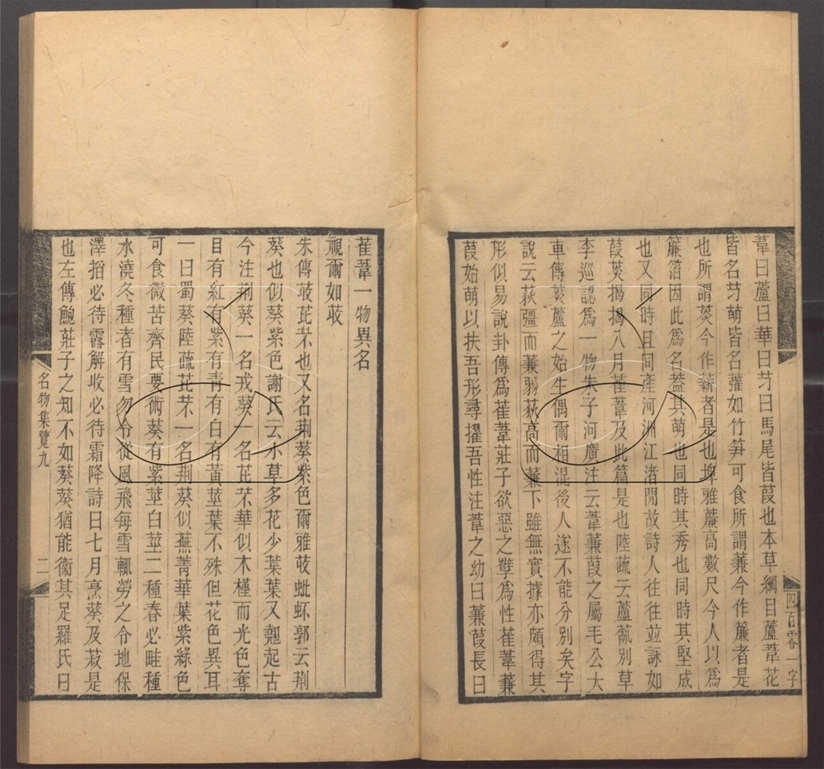 葦曰蘆曰華曰艻曰馬尾皆葭也本草綱目蘆葦花
皆名艻萌皆名虇如竹笋可食所謂蒹今作簾者是
也所謂菼今作薪者是也埤雅薕高數尺今人以爲
簾箔因此爲名葢其萌也同時其秀也同時其堅成
也又同時且同產河洲江渚閒故詩人往往竝詠如
葭菼揭揭八月萑葦及此篇是也陸疏云蘆薍別草
李巡認爲一物朱子河廣注云葦蒹葭之屬毛公大
車傳菼蘆之始生偶爾相混後人遂不能分別矣字
說云荻彊而蒹弱荻高而蒹下雖無實據亦頗得其
形似易說卦傳爲萑葦莊子欲惡之孽爲性萑葦蒹
葭始萌以扶吾形尋擢吾性注葦之幼曰蒹葭長曰
四百零一字
萑葦一物異名
視爾如荍
朱傳荍芘芣也又名荆葵紫色爾雅荍蚍衃郭云荆
葵也似葵紫色謝氏云小草多花少葉葉又翹起古
今注荆葵一名戎葵一名芘芣華似木槿而光色奪
目有紅有紫有青有白有黃莖葉不殊但花色異耳
一曰蜀葵陸疏芘芣一名荆葵似蕪菁華葉紫綠色
可食微苦齊民要術葵有紫莖白莖二種春必畦種
水澆冬種者有雪勿令從風飛每雪輒勞之令地保
澤掐必待露解收必待霜降詩曰七月烹葵及菽是
也左傳鮑莊子之知不如葵葵猶能衞其足羅氏曰
名物集覽九
二